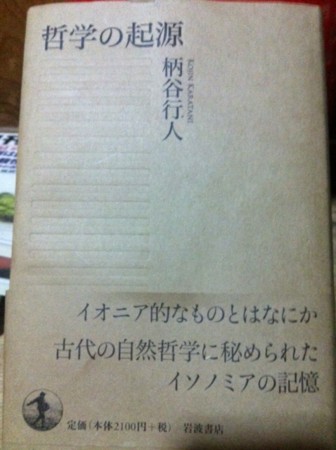 哲学の起源
柄谷行人
KOJIN KARATANI
イオニア的なものとはなにか
古代の自然哲学に秘められた
イソノミアの記憶
定価(本体2100円+税) 岩波書店